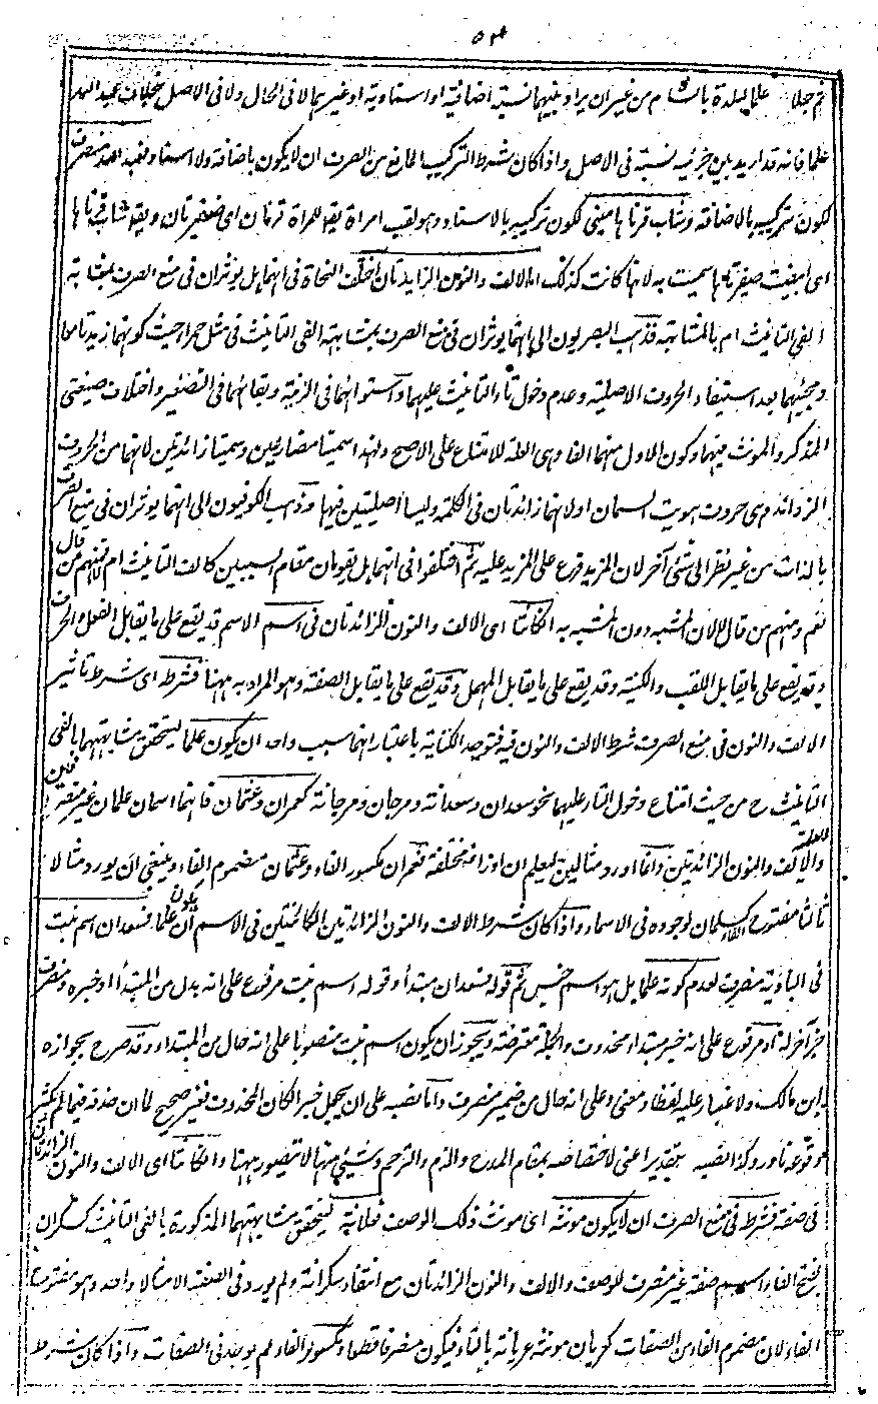 ثم جعلا علما لبلدة بالشام من غير ان يراد بينهما نسبة اضافية او اسنادية او غيرهما لا فى الحال ولا فى الاصل بخلاف عبد الله
علما فانه قد اريد بين جزئيه نسبة فى الاصل واذا كان شرط التركيب المانع من الصرف ان لا يكون باضافة ولا اسناد فعبد الله منصرف
لكون تركيبه بالاضافة وشاب قرناها مبنى لكون تركيبه بالاسناد وهو لقب امراة يقال للمراة قرنان اى ضفيرتان ويقال شاب قرناها
اى ابيضت ضفيرتاها سميت به لانها كانت كذلك اما الالف والنون الزايدتان اختلف النحاة فى انهما هل يوثران فى منع الصرف بمشابهة
الفى التانيث ام بالمشابهة فذهب البصريون الى انهما يوثران فى منع الصرف بمشابهة الفى التانيث فى مثل حمراء من حيث كونهما زيدتا معا
ومجيئهما بعد استيفاء الحروف الاصلية وعدم دخول تاء التانيث عليهما واستوائهما فى الزنة وبقائهما فى التصغير واختلاف صيغتى
المذكر والمونث فيهما وكون الاول منهما الفا وهى العلة للامتناع على الاصح ولهذا سميتا مضارعين وسميتا زائدتين لانهما من الحروف
الزوائد وهى حروف هويت السمان او لانهما زائدتان فى الكلمة وليسا اصليتين فيها وذهب الكوفيون الى انهما يوثران فى منع الصرف
بالذات من غير نظر الى شئى آخر لان المزيد فرع على المزيد عليه ثم اختلفوا فى انهما هل يقومان مقام السببين كالف التانيث ام لا فمنهم من قال
نعم ومنهم من قال لا لان المشبه دون المشبه به الكائنتا اى الالف والنون الزائدتان فى اسم الاسم قد يقع على ما يقابل الفعل والحرف
وقد يقع على ما يقابل اللقب والكنية وقد يقع على ما يقابل المهمل وقد يقع على ما يقابل الصفة وهو المراد به ههنا فشرط اى شرط تاثير
الالف والنون فى منع الصرف شرط الالف والنون فيه فتوحد الكناية باعتبار انهما سبب واحد ان يكون علما ليتحقق مشابهتهما بالفى
التانيث ح من حيث امتناع دخول التاء عليهما نحو سعدان وسعدانة ومرجان ومرجانة كعمران وعثمان فانهما اسمان علمان غير منصرفين
للعلمية والالف والنون الزائدتين وانما اورد مثالين ليعلم ان اوزانه مختلفة فعمران مكسور الفاء وعثمان مضموم الفاء وينبغى ان يورد مثالا
ثالثا مفتوح الفاء كسلمان لوجوده فى الاسماء واذا كان شرط الالف والنون الزائدتين الكائنتين فى الاسم ان يكون علما فسعدان اسم نبت
فى البادية منصرف لعدم كونه علما بل هو اسم جنس ثم قوله فسعدان مبتدأ وقوله اسم نبت مرفوع على انه بدل من المبتدأ او خبره ومنصرف
خبر آخر له او مرفوع على انه خبر مبتداء محذوف والجملة معترضة ويجوز ان يكون اسم نبت منصوبا على انه حال من المبتداء وقد صرح بجوازه
ابن مالك ولا غبار عليه لفظا ومعنى وعلى انه حال من ضمير منصرف واما نصبه على ان يجعل خبر الكان المحذوف فغير صحيح لما ان حذفه فيما لم يكثر
وقوعه نادر وكذا نصبه بتقدير اعنى لاختصاصه بمقام المدح والذم والترحم وشيئى منها لا يتصور ههنا والكائنتا اى الالف والنون الزائدتان
فى صفة فشرط فى منع الصرف ان لا يكون مونثه اى مونث ذلك الوصف فعلانة ليتحقق مشابهتهما المذكورة بالفى التانيث كسكران
بفتح الفاء اسم صفة غير منصرف للوصف والالف والنون الزائدتان مع انتفاء سكرانة ولم يورد فى الصفة الا مثالا واحدا وهو مفتوح
الفاء لان مضموم الفاء من الصفات كعريان مونثه عريانة بالتاء فيكون منصرفا قطعا ومكسور الفاء لم يوجد فى الصفات واذا كان شرط